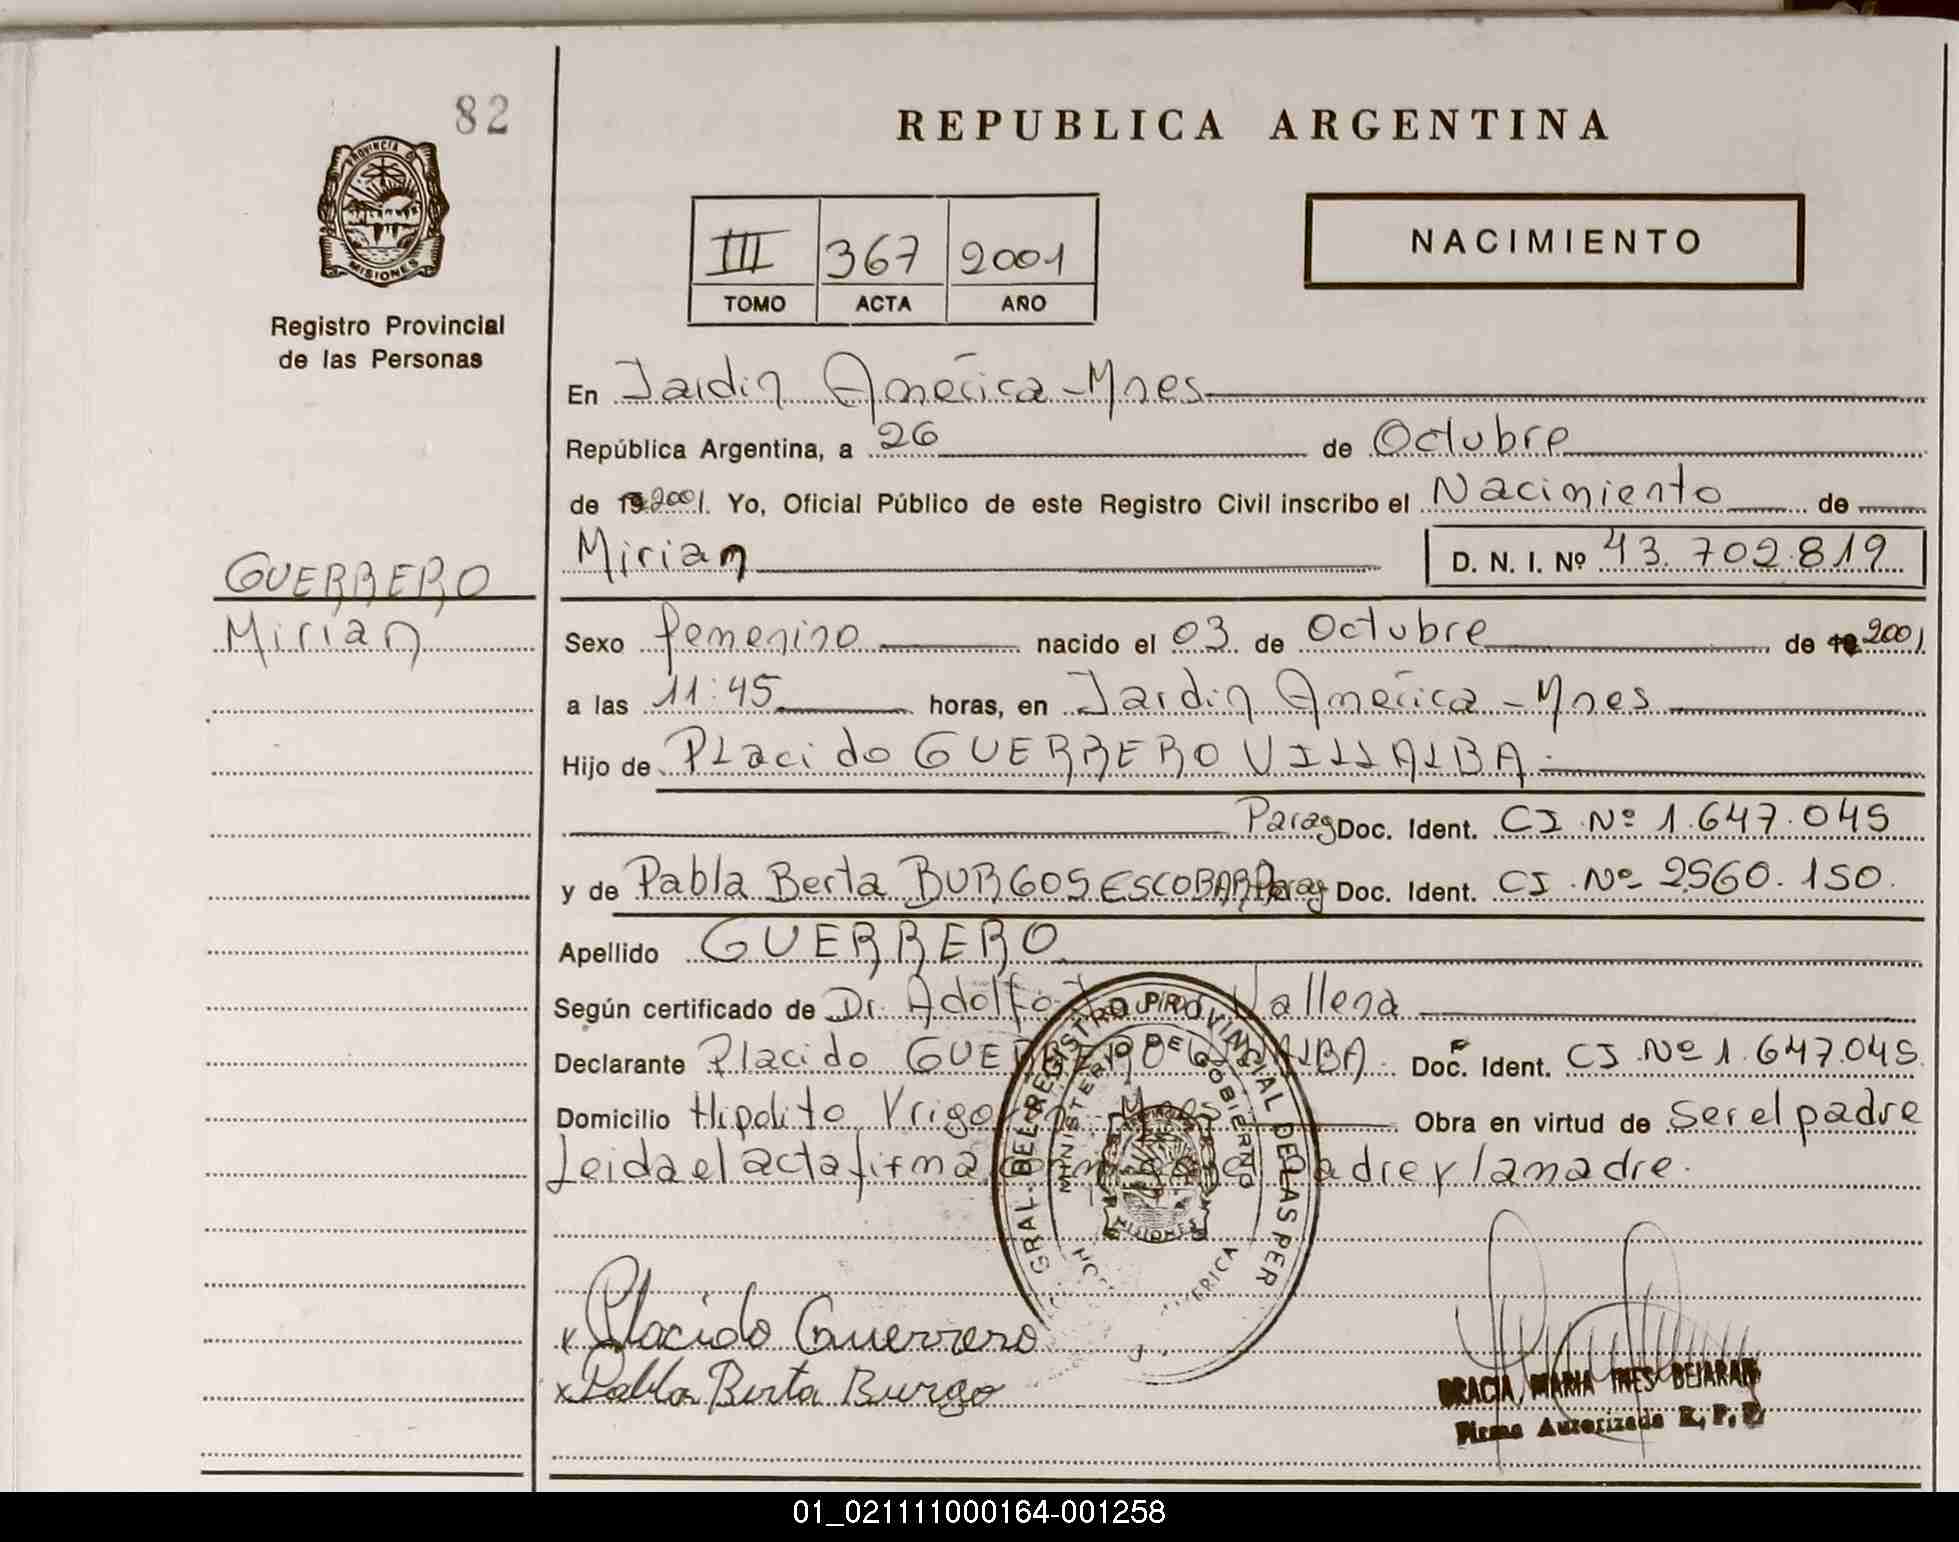 82
REPUBLICA ARGENTINA
PROVINCIA DE
MISIONES
Registro Provincial
de las Personas
III 367 2001
TOMO ACTA AÑO
NACIMIENTO
En Jardín América - Mnes
República Argentina, a 26 de Octubre
de 19 2001. Yo, Oficial Público de este Registro Civil inscribo el Nacimiento de
Mirian D. N. I. Nº 43.702.819
GUERRERO
Mirian
Sexo femenino nacido el 03 de Octubre de 19 2001
a las 11:45 horas, en Jardín América - Mnes
Hijo de Placido GUERRERO VILLALBA.
Parag Doc. Ident. CI Nº 1.647.045
y de Pabla Berta BURGOS ESCOBAR Parag Doc. Ident. CI Nº 2560.150.
Apellido GUERRERO
Según certificado de Dr. Adolfo Vallena
Declarante Placido GUERRERO VILLALBA. Doc. Ident. CI Nº 1.647.045
Domicilio Hipolito Yrigoyen Mnes Obra en virtud de ser el padre
Leida el acta firma conmigo el padre y la madre.
GRAL DEL REGISTRO PROVINCIAL DE LAS PER
MINISTERIO DE GOBIERNO
MISIONES
x Placido Guerrero
x Pabla Berta Burgo
GRACIA MARIA INES BEJARAN
Firma Autorizada R. P. P.
01_021111000164-001258